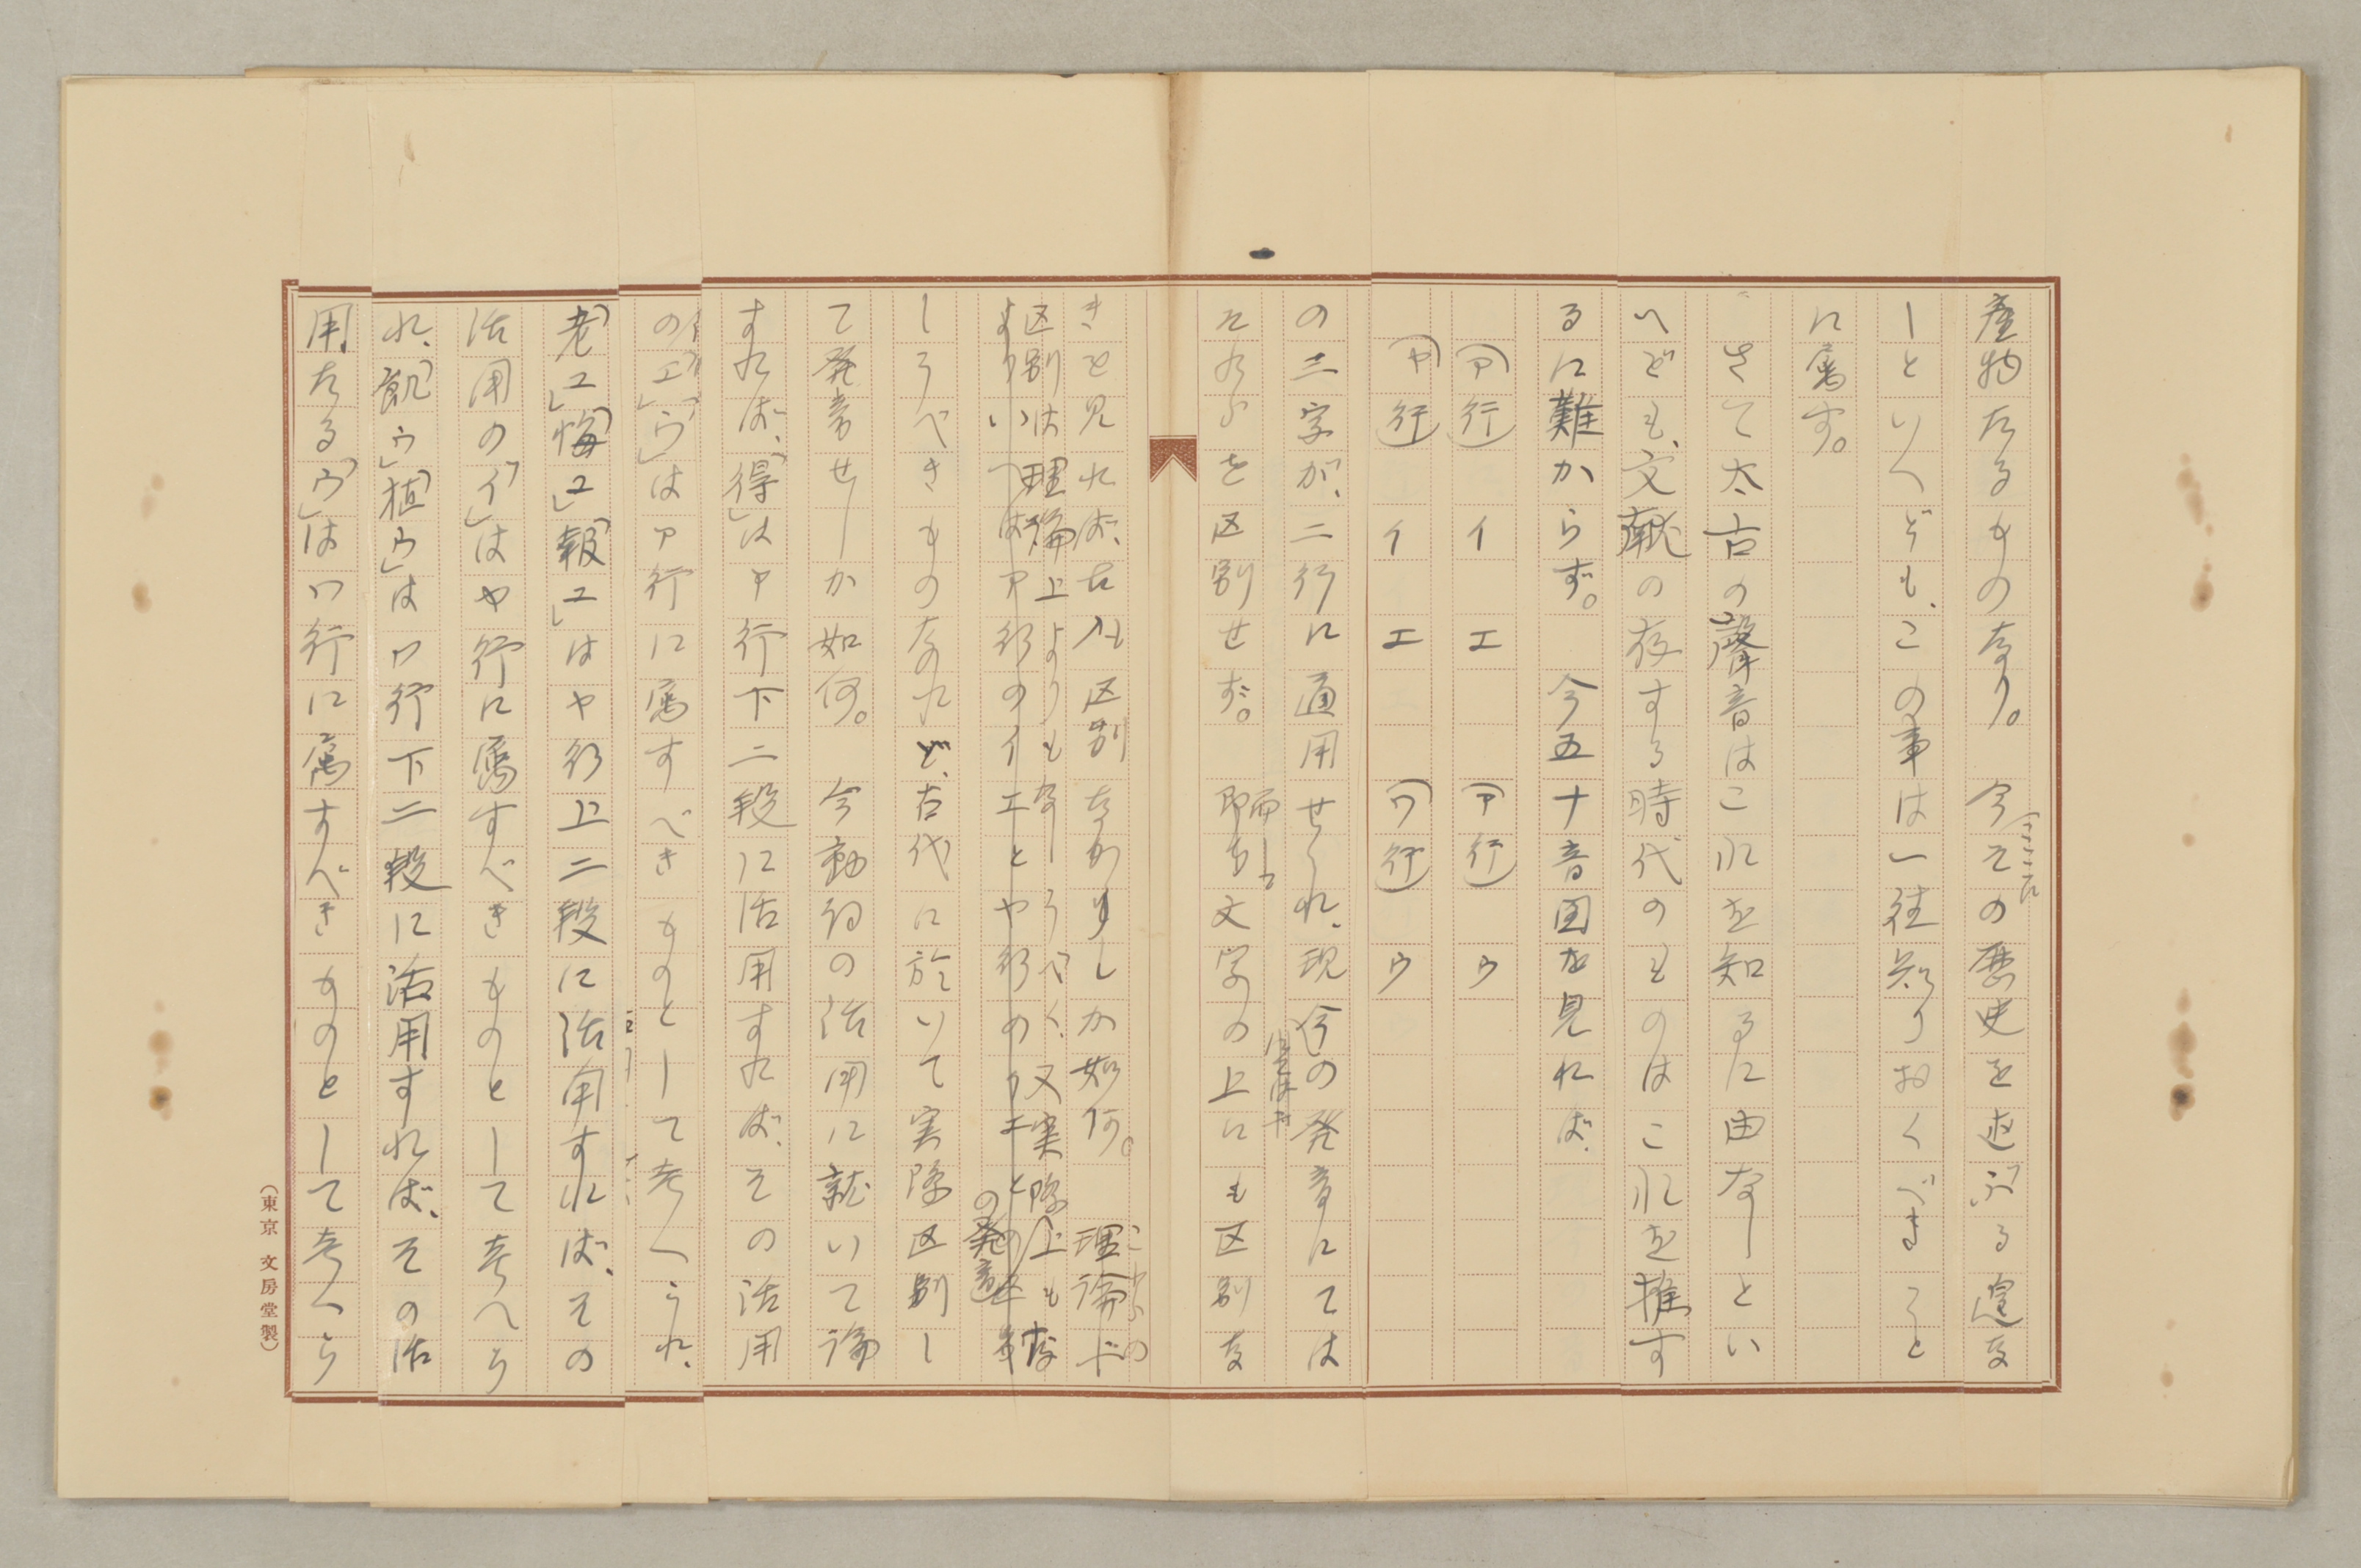 産物たるものなり。今ここにその歴史を述ぶる遑な
しといへども、この事は一往知りおくべきこと
に属す。
さて太古の聲音はこれを知るに由なしとい
へども、文献の存する時代のものはこれを推す
るに難からず。今五十音図を見れば、
(ア行)イエ (ア行)ウ
(ヤ行)イエ (ワ行)ウ
の三字が、二行に通用せられ、現今の発音にては
それらを区別せず。而して文字の上にも区別な
きを見れば、古へも区別なかりしか如何。これらの理論
区別は理論上よりも存しうべく、又実際上も存
よりいへばア行のイエとヤ行のイエとの
の発音
しうべきものなれど、古代に於いて実際区別し
て発音せしか如何。今動詞の活用に就いて論
ずれば、「得」はア行下二段に活用すれば、その活用
の「エ」「ウ」はア行に属すべきものとして考へられ、
「老ユ」「悔ユ」「報ユ」はヤ行上二段に活用すれば、その
活用の「イ」はヤ行に属すべきものとして考へら
れ、「飢ウ」「植ウ」はワ行下二段に活用すれば、その活
用たる「ウ」はワ行に属すべきものとして考へら
(東京 文房堂製)